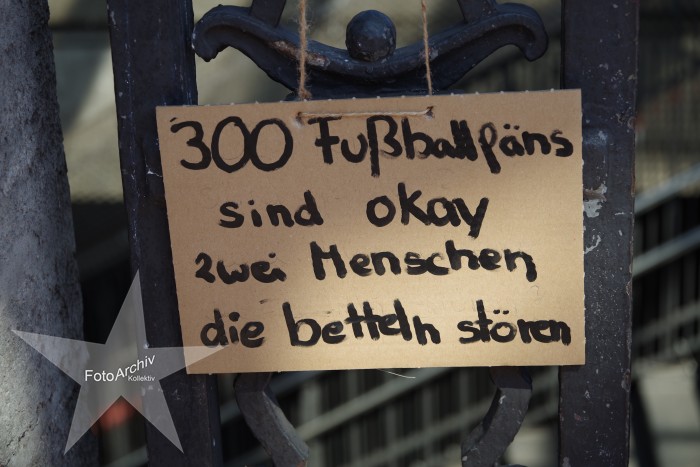 300 Fußballfäns
sind okay
zwei Menschen
die betteln stören
FotoArchiv
Kollektiv